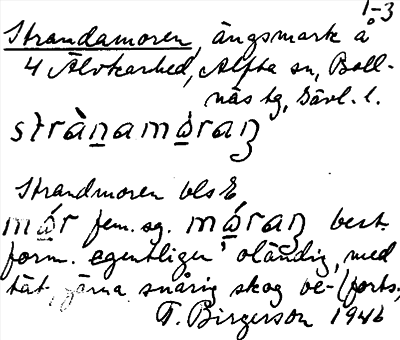 1-3
Strandamoren, ängsmark å
4 Älvkarhed, Alfta sn, Boll-
näs tg, Gävl. l.
stràn̲amò̲raŋ
Strandmoren bls E
mó̲r fem. sg. mó̲raŋ best.
form. egentligen oländig, med
tät, gärna snårig skog be- (forts.,
T. Birgerson 1946